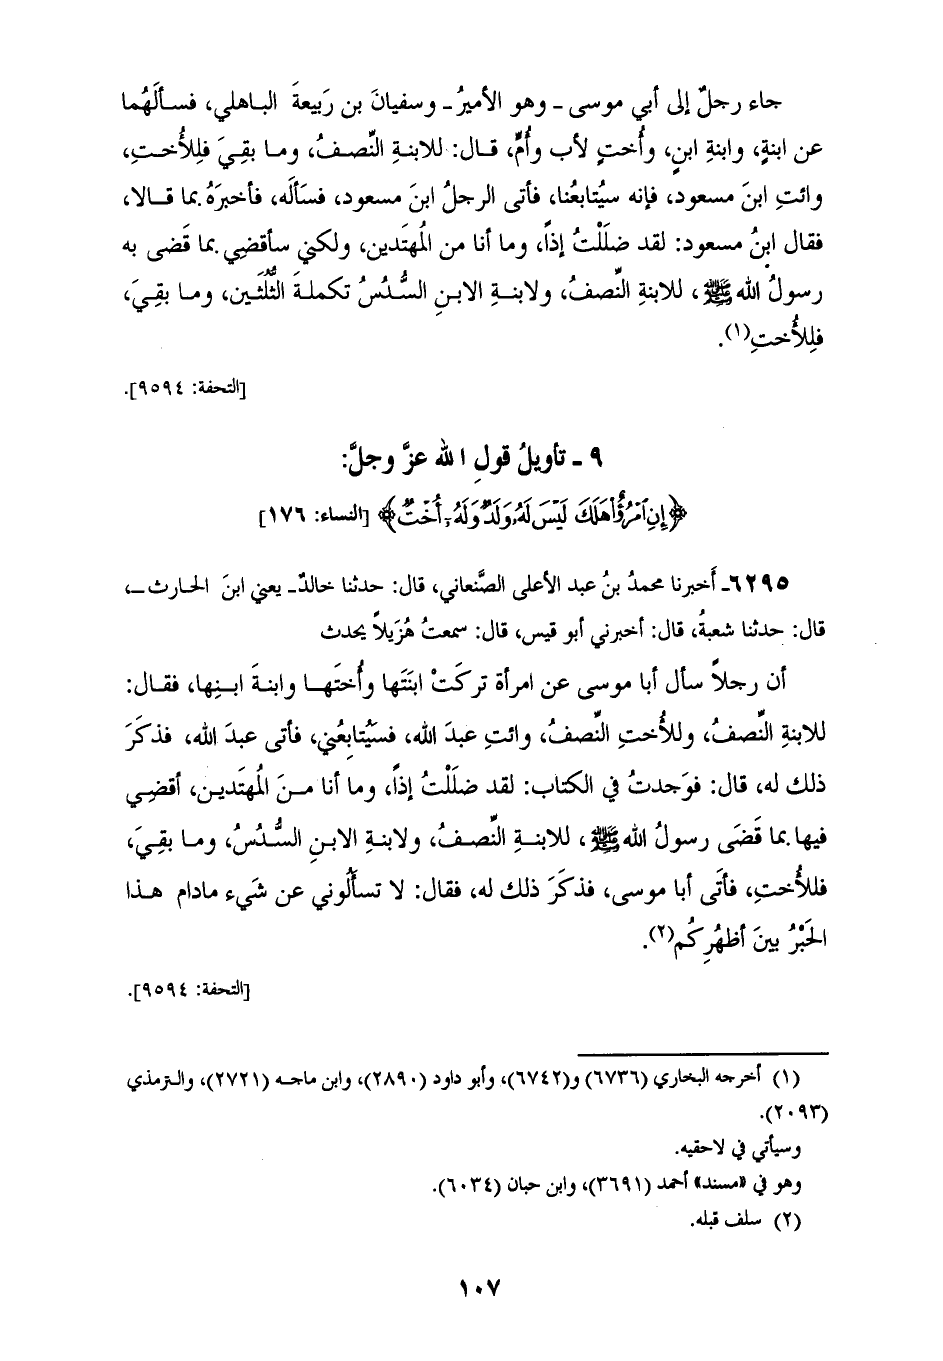 جاء رجلٌ إلى أبي موسى ـ وهو الأميرُ ـ وسفيانَ بن رَبيعةَ الباهلي، فسألَهُما
عن ابنةٍ، وابنةِ ابنٍ، وأُختٍ لأب وأُمٍّ، قال: للابنةِ النِّصفُ، وما بقِيَ فلِلأُختِ،
وائتِ ابنَ مسعود، فإنه سيُتابعُنا، فأتى الرجلُ ابنَ مسعود، فسألَه، فأخبرَهُ بما قالا،
فقال ابنُ مسعود: لقد ضلَلْتُ إذاً، وما أنا من المُهتَدين، ولكني سأقضِي بما قَضى به
رسولُ الله ﷺ، للابنةِ النِّصفُ، ولابنةِ الابنِ السُّدُسُ تكملةَ الثُّلُثَين، وما بقِيَ،
فلِلأُختِ(١).
[التحفة: ٩٥٩٤].
٩ ـ تأويلُ قولِ الله عزَّ وجلَّ:
﴿إِنِ ٱمْرُؤٌا۟ هَلَكَ لَيْسَ لَهُۥ وَلَدٌ وَلَهُۥٓ أُخْتٌ﴾ [النساء: ١٧٦]
٦٢٩٥ـ أَخبرنا محمدُ بنُ عبد الأعلى الصَّنعاني، قال: حدثنا خالدٌ ـ يعني ابنَ الحارث ـ،
قال: حدثنا شعبةُ، قال: أخبرني أبو قيس، قال: سمعتُ هُزَيلاً يحدث
أن رجلاً سأل أبا موسى عن امرأة تركَتْ ابنَتَها وأُختَها وابنةَ ابنِها، فقال:
للابنةِ النِّصفُ، وللأُختِ النِّصفُ، وائتِ عبدَ الله، فسَيُتابِعُني، فأتى عبدَ الله، فذكَرَ
ذلك له، قال: فوَجدتُ في الكتاب: لقد ضلَلْتُ إذاً، وما أنا منَ المُهتَدين، أقضِي
فيها بما قَضَى رسولُ الله ﷺ، للابنةِ النِّصفُ، ولابنةِ الابنِ السُّدُسُ، وما بقِيَ،
فللأُختِ، فأتَى أبا موسى، فذكَرَ ذلك له، فقال: لا تسألُوني عن شَيء مادام هذا
الحَبْرُ بينَ أظهُرِكُم(٢).
[التحفة: ٩٥٩٤].
(١) أخرجه البخاري (٦٧٣٦) و(٦٧٤٢)، وأبو داود (٢٨٩٠)، وابن ماجه (٢٧٢١)، والترمذي
(٢٠٩٣).
وسيأتي في لاحقيه.
وهو في «مسند» أحمد (٣٦٩١)، وابن حبان (٦٠٣٤).
(٢) سلف قبله.
١٠٧